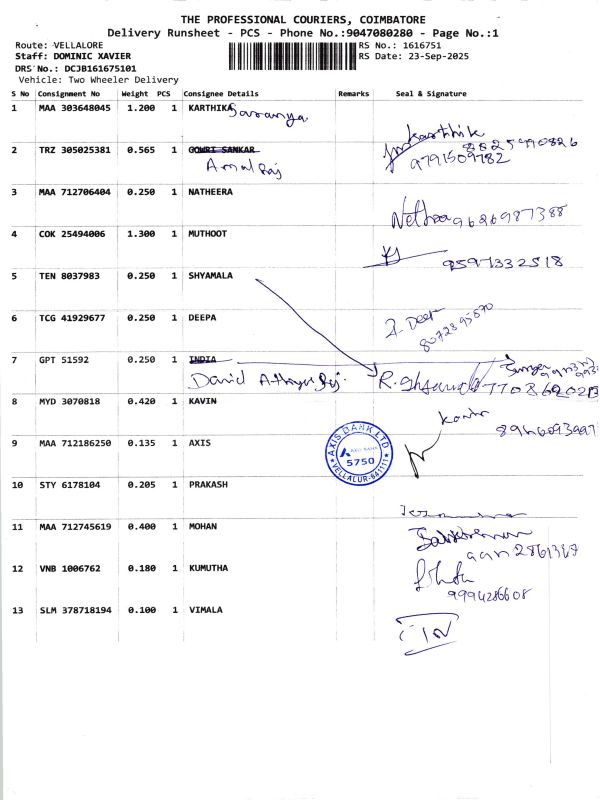 THE PROFESSIONAL COURIERS, COIMBATORE
Delivery Runsheet - PCS - Phone No.:9047080280 - Page No.:1
Route: VELLALORE RS No.: 1616751
Staff: DOMINIC XAVIER RS Date: 23-Sep-2025
DRS No.: DCJB161675101
Vehicle: Two Wheeler Delivery
S No Consignment No Weight PCS Consignee Details Remarks Seal & Signature
1 MAA 303648045 1.200 1 KARTHIKA Saranya
Karthik
8825990826
2 TRZ 305025381 0.565 1 GOWRI SANKAR
Amalraj 9791509782
3 MAA 712706404 0.250 1 NATHEERA
9626987388
4 COK 25494006 1.300 1 MUTHOOT
9597332518
5 TEN 8037983 0.250 1 SHYAMALA
6 TCG 41929677 0.250 1 DEEPA
8072895870
7 GPT 51592 0.250 1 INDIA
David
8 MYD 3070818 0.420 1 KAVIN
9 MAA 712186250 0.135 1 AXIS
AXIS BANK LTD
AXIS BANK
5750
VELLALUR-641111
10 STY 6178104 0.205 1 PRAKASH
11 MAA 712745619 0.400 1 MOHAN
12 VNB 1006762 0.180 1 KUMUTHA
9994286608
13 SLM 378718194 0.100 1 VIMALA